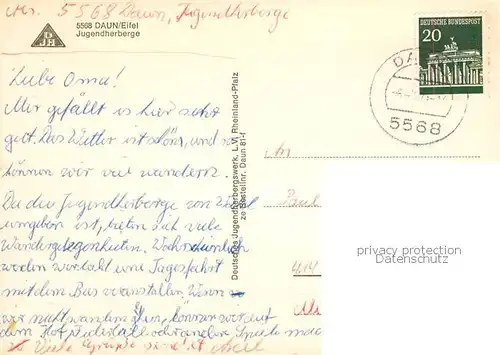 5568 Daun, Jugendherberge
5568 DAUN/Eifel
Jugendherberge
DEUTSCHE BUNDESPOST
20
5568
Liebe Oma!
Mir gefällt es hier sehr
gut. Das Wetter ist schön, und
können wir viel wandern.
Da die Jugendherberge von
umgeben ist, bieten sich viele
Wandergelegenheiten. Wahrscheinlich
werden wir bald eine Tagesfahrt
mit dem Bus veranstalten. Wenn
wir nicht wandern können wir auf
dem Hof
Viele Grüße
Deutsches Jugendherbergswerk, L.V. Rheinland-Pfalz
ze Bestellnr. Daun 81-f
An
Paul
414
privacy protection
Datenschutz